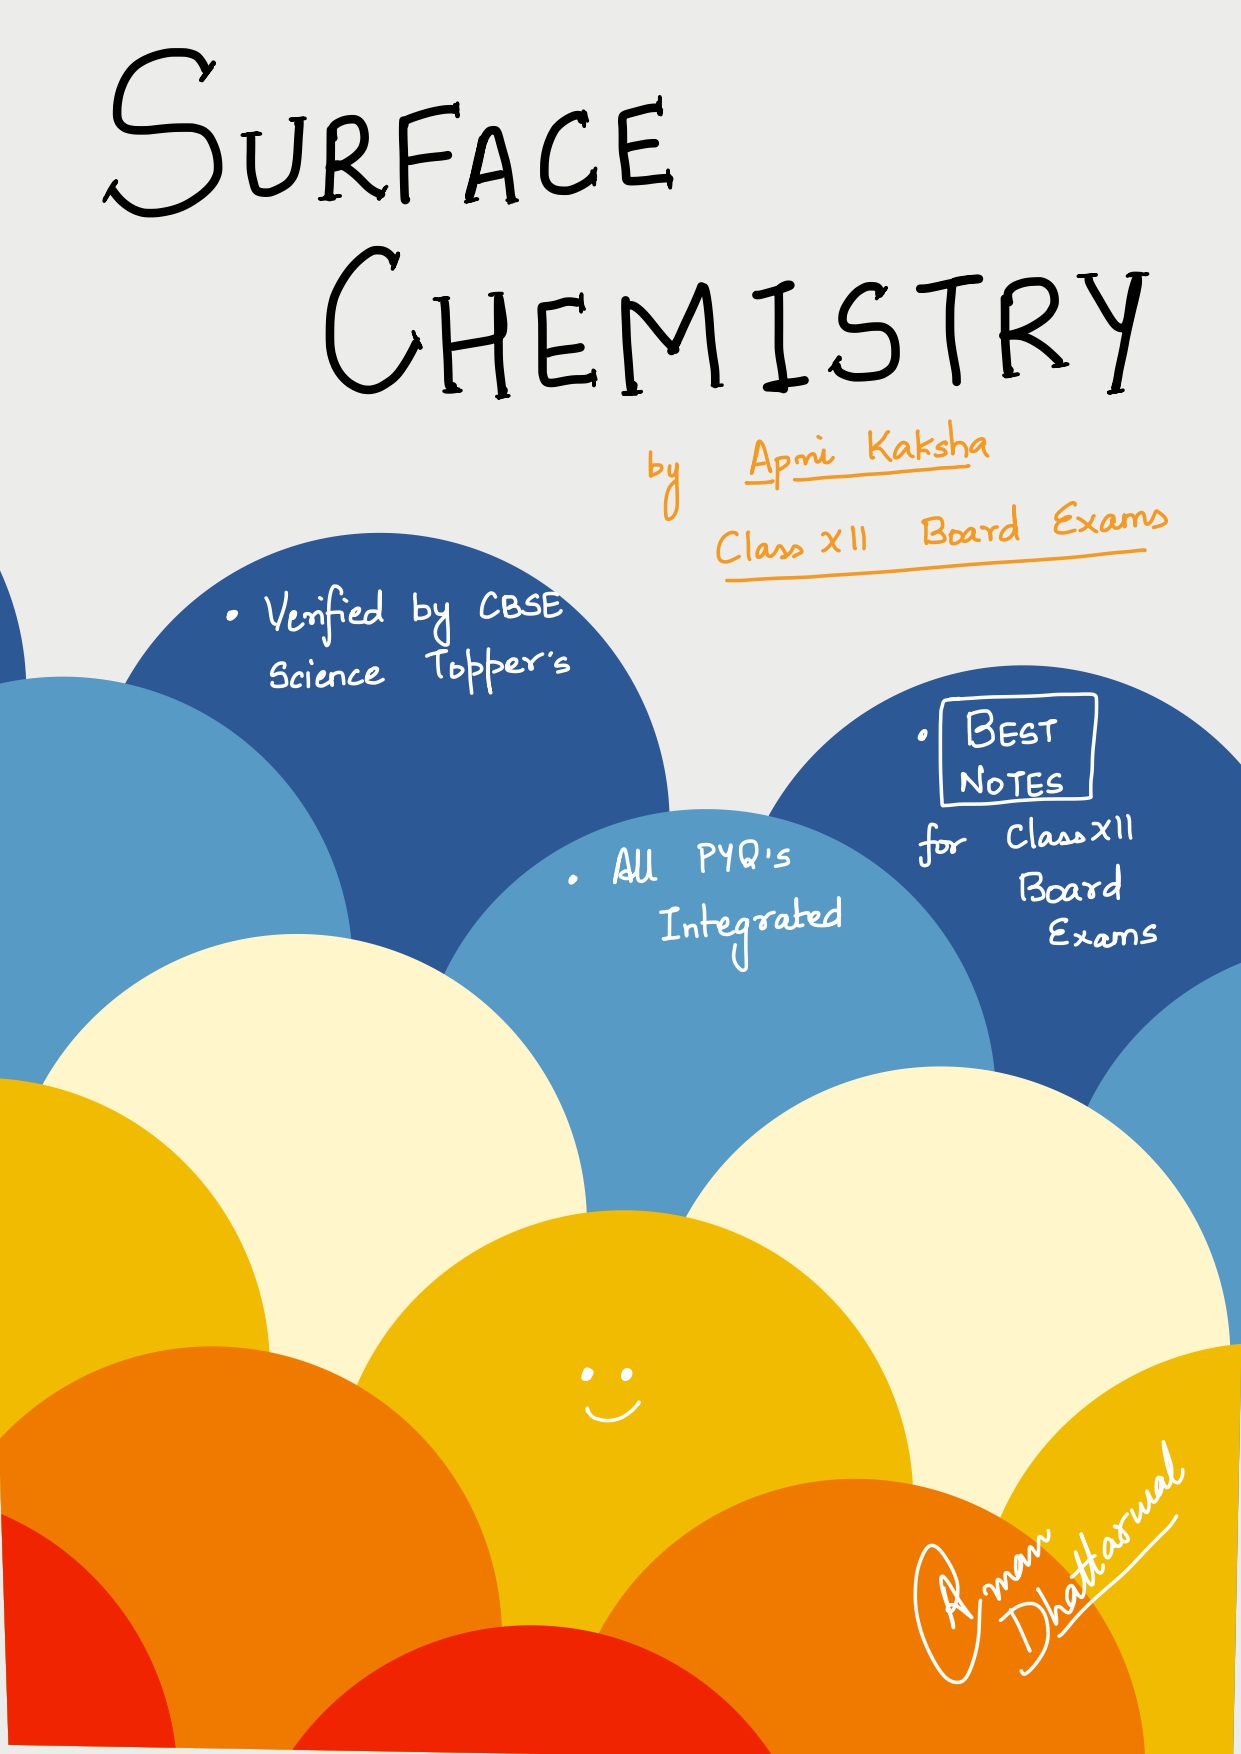 SURFACE
CHEMISTRY
by Apni Kaksha
Class XII Board Exams
• Verified by CBSE
Science Topper's
• BEST
NOTES
for Class XII
Board
Exams
• All PYQ's
Integrated
Aman
Dhattarwal